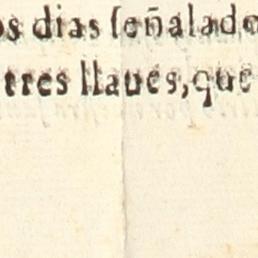 os dias ſeñalado
tres llaues, que